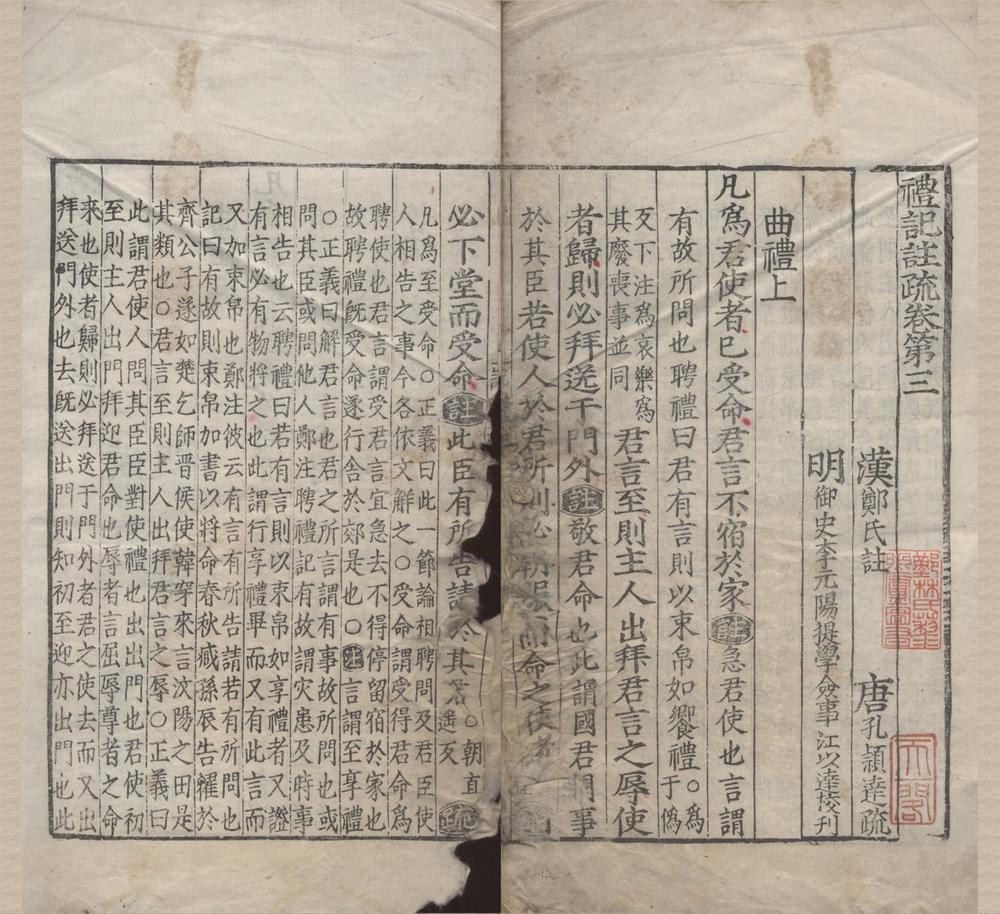 禮記註疏卷第三
漢鄭氏註 唐孔頴達疏
明御史李元陽提學僉事江以達挍刊
曲禮上
凡爲君使者已受命君言不宿於家註急君使也言謂
有故所問也聘禮曰君有言則以束帛如饗禮○爲于僞
反下注爲哀樂爲其廢喪事並同君言至則主人出拜君言之辱使
者歸則必拜送于門外註敬君命也此謂國君問事
於其臣若使人於君所則必朝服而命之使
必下堂而受命註此臣有所告請於其君○朝直遙反疏
凡爲至受命○正義曰此一節論相聘問及君臣使
人相告之事今各依文解之○受命謂受得君命爲
聘使也君言謂受君言宜急去不得停留宿於家也
故聘禮旣受命遂行舍於郊是也○注言謂至享禮
○正義曰解君言也君之所言謂有事故所問也或
問其臣或問他人鄭注聘禮記有故謂灾患及時事
相告也云聘禮曰若有言則以束帛如享禮者又證
有言必有物將之也此謂行享禮畢而又有此言而
又加束帛也鄭注彼云有言有所告請若有所問也
記曰有故則束帛加書以將命春秋臧孫辰告糴於
齊公子遂如楚乞師晉侯使韓穿來言汶陽之田是
其類也○君言至則主人出拜君言之辱○正義曰
此謂君使人問其臣臣對使禮也出出門也君使初
至則主人出門拜迎君命也辱者言屈辱尊者之命
来也使者歸則必拜送于門外者君之使去而又出
拜送門外也去旣送出門則知初至迎亦出門也此